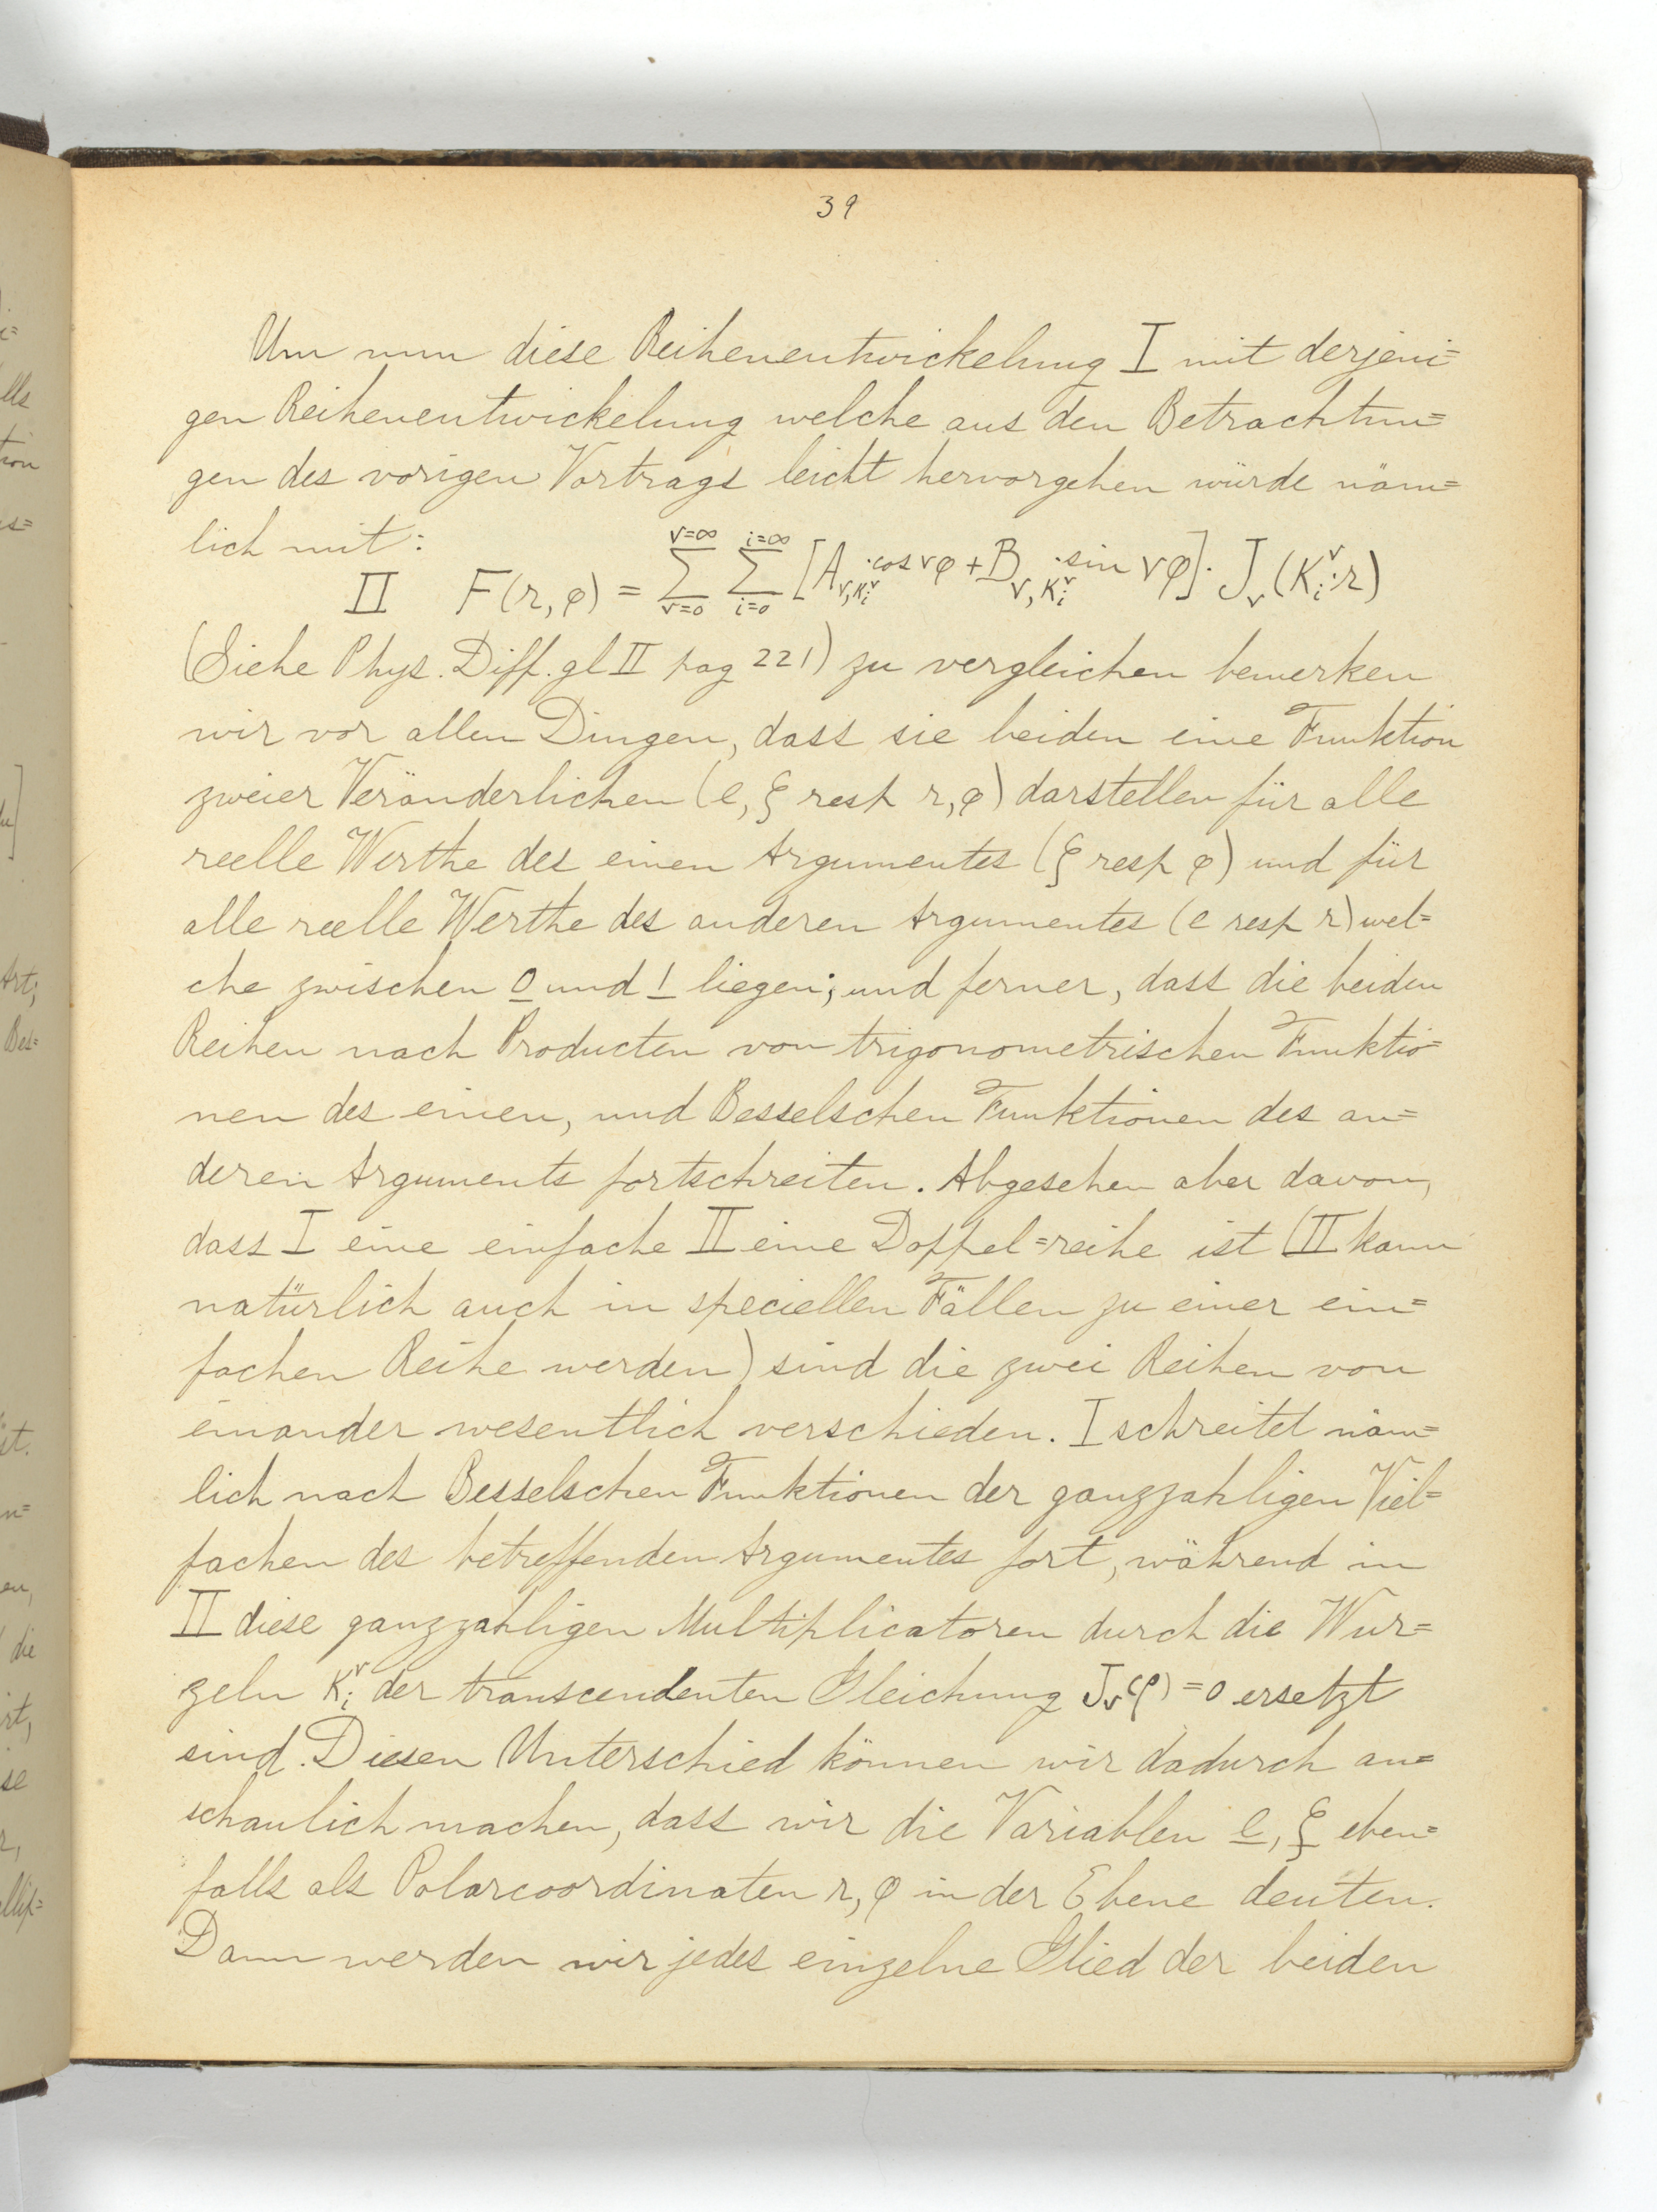 39
Um nun diese Reihenentwickelung I mit derjeni=
gen Reihenentwickelung welche aus den Betrachtun=
gen des vorigen Vortrags leicht hervorgehen würde näm=
lich mit:
II F(r, φ) = Σ_{ν=0}^{ν=∞} Σ_{i=0}^{i=∞} [A_{ν,K_i^ν} · cos νφ + B_{ν,K_i^ν} · sin νφ] · J_ν(K_i^ν · r)
(Siehe Phys. Diff. gl II pag 221) zu vergleichen bemerken
wir vor allen Dingen, dass sie beiden eine Funktion
zweier Veränderlichen (e, ξ resp r, φ) darstellen für alle
reelle Werthe des einen Argumentes (ξ resp φ) und für
alle reelle Werthe des anderen Argumentes (e resp r) wel=
che zwischen 0 und 1 liegen; und ferner, dass die beiden
Reihen nach Producten von trigonometrischen Funktio=
nen des einen, und Besselschen Funktionen des an=
deren Arguments fortschreiten. Abgesehen aber davon,
dass I eine einfache II eine Doppel=reihe ist (II kann
natürlich auch in speciellen Fällen zu einer ein=
fachen Reihe werden) sind die zwei Reihen von
einander wesentlich verschieden. I schreitet näm=
lich nach Besselschen Funktionen der ganzzahligen Viel=
fachen des betreffenden Argumentes fort, während in
II diese ganzzahligen Multiplicatoren durch die Wur=
zeln K_i^ν der transcendenten Gleichung J_ν(ρ) = 0 ersetzt
sind. Diesen Unterschied können wir dadurch an=
schaulich machen, dass wir die Variablen e, ξ eben=
falls als Polarcoordinaten r, φ in der Ebene deuten.
Dann werden wir jedes einzelne Glied der beiden